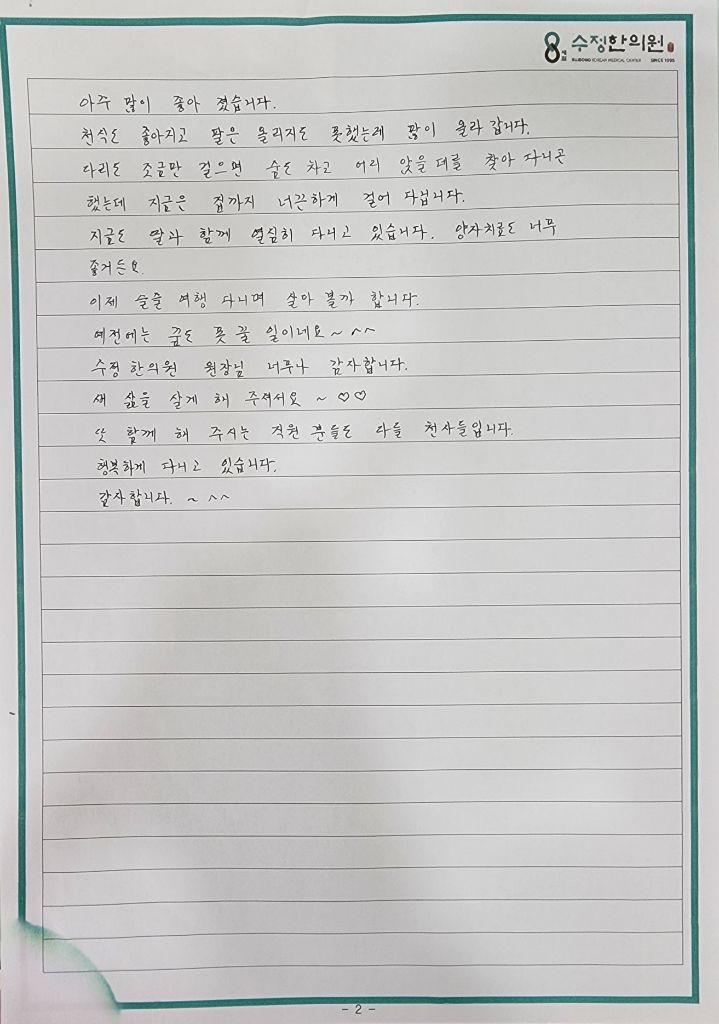 수정한의원
KOREAN MEDICAL CENTER SINCE 1995
아주 많이 좋아 졌습니다.
천식도 좋아지고 팔은 올리지도 못했는데 많이 올라 갑니다.
다리도 조금만 걸으면 숨도 차고 어리 앉을 데를 찾아 다니곤
했는데 지금은 집까지 너끈하게 걸어 다닙니다.
지금도 딸과 함께 열심히 다니고 있습니다. 양자치료도 너무
좋거든요.
이제 슬슬 여행 다니며 살아 볼까 합니다.
예전에는 꿈도 못 꿀 일이네요 ~ ^^
수정 한의원 원장님 너무나 감사합니다.
새 삶을 살게 해 주셔서요 ~ ♡♡
또 함께 해 주시는 직원 분들도 다들 천사들입니다.
행복하게 다니고 있습니다.
감사합니다. ~ ^^
- 2 -